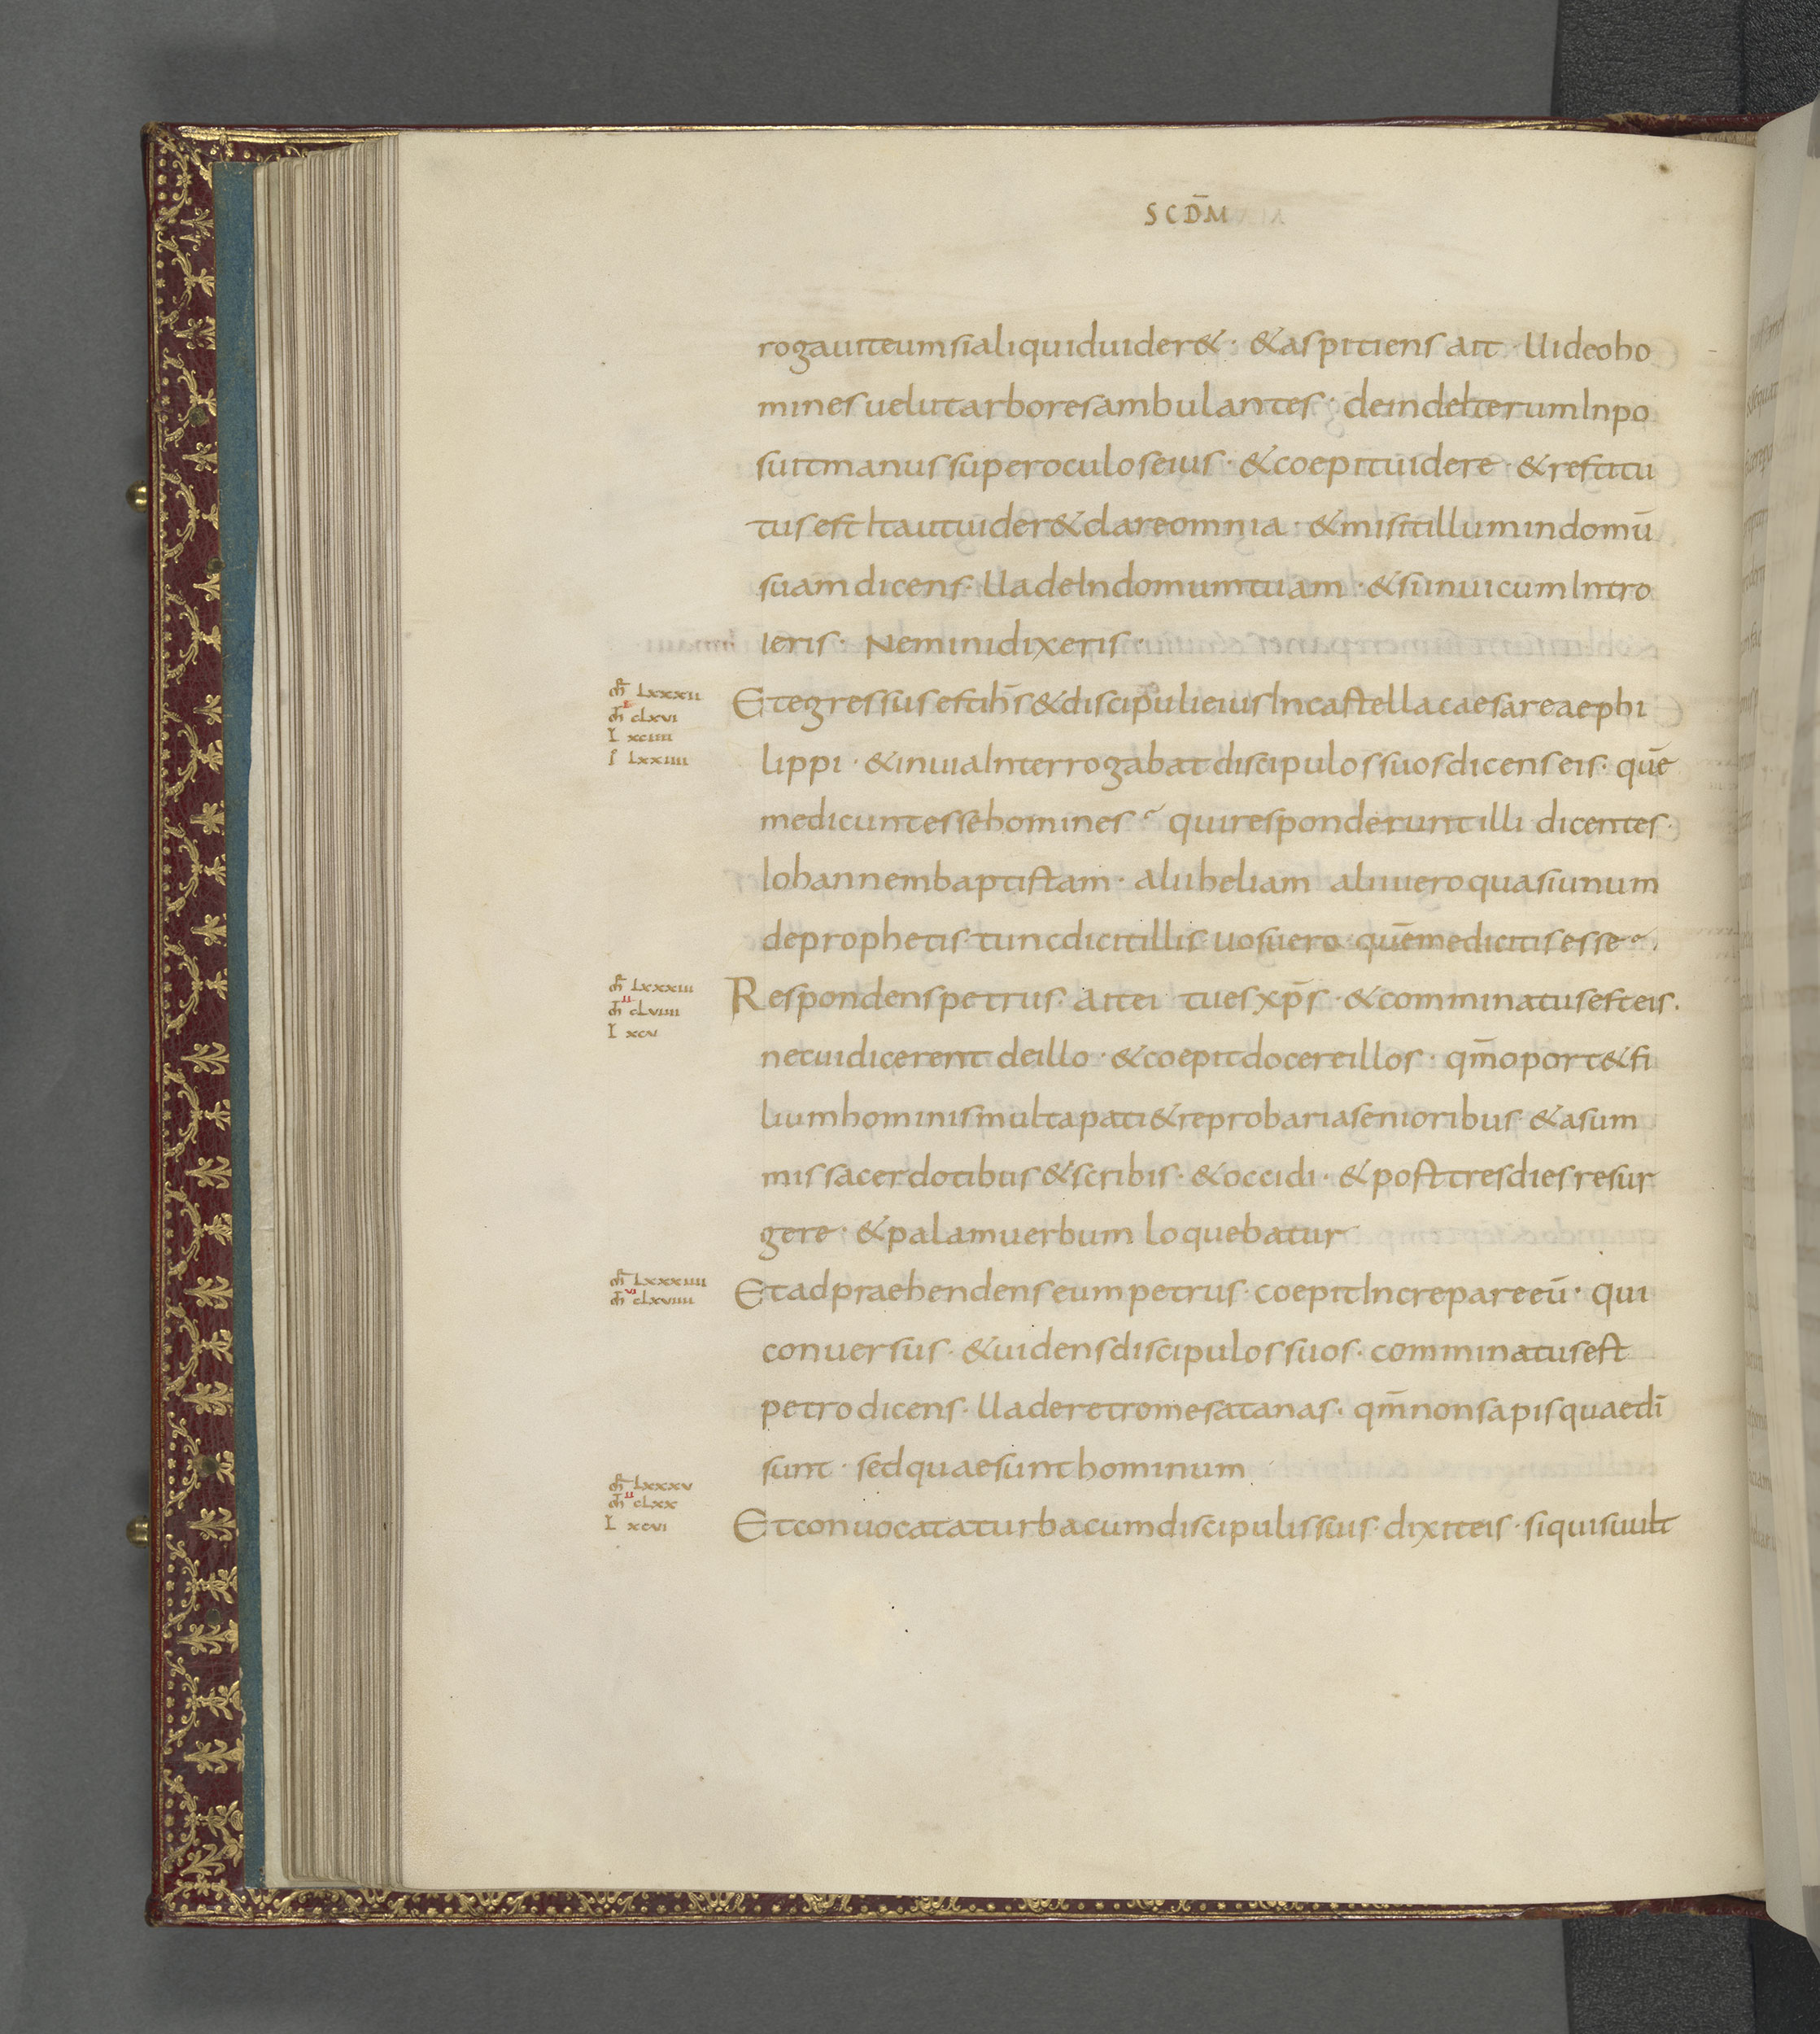 SCDM̄
rogauiteumsialiquiduider&· &aspitiens ait · Uideoho
minesuelutarboresambulantes· deindeIterumInpo
suitmanussuperoculoseius· &coepituidere · &restitu
tusestItautuider&clareomnia· &misitilluminindomū
suamdicens· UadeIndomumtuam · &siinuicumIntro
ieris· Neminidixeris·
m̄r LXXXII
m̄t CLXVI
I XCIIII
l LXXIIII
Etegressusestih̄s&discipulieiusIncastellacaesareaephi
lippi · &inuiaInterrogabatdiscipulossuosdicenseis· quē
medicuntessehomines quiresponderuntilli dicentes·
Iohannembaptistam· aliiheliam aliiueroquasiunum
deprophetis·tuncdicitillis·uosuero quēmedicitisesse
m̄r LXXXIII
II
m̄t CLVIIII
I XCV
Respondenspetrus· aitei tuesxp̄s ·&comminatusesteis·
necuidicerent deillo · &coepitdocereillos· qm̄oport&fi
liumhominismultapati&reprobariasenioribus· &asum
missacerdotibus&scribis· &occidi· &posttresdiesresur
gere· &palamuerbum loquebatur
m̄r LXXXIIII
VI
m̄t CLXVIIII
Etadpraehendenseumpetrus·coepitIncrepareeū· qui
conuersus· &uidensdiscipulossuos· comminatusest
petrodicens· Uaderetromesatanas· qm̄nonsapisquaedī
sunt · sedquaesunthominum
m̄r LXXXV
II
m̄t CLXX
I XCVI
Etconuocataturbacumdiscipulissuis·dixiteis·siquisuult